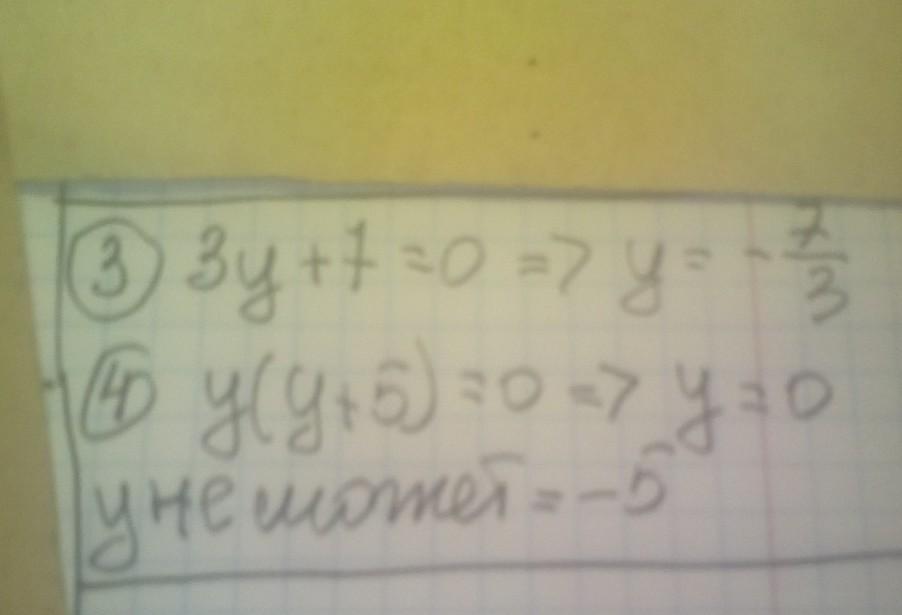 ③ 3y + 7 = 0 => y = -7/3
④ y(y+5) = 0 => y = 0
y не может = -5